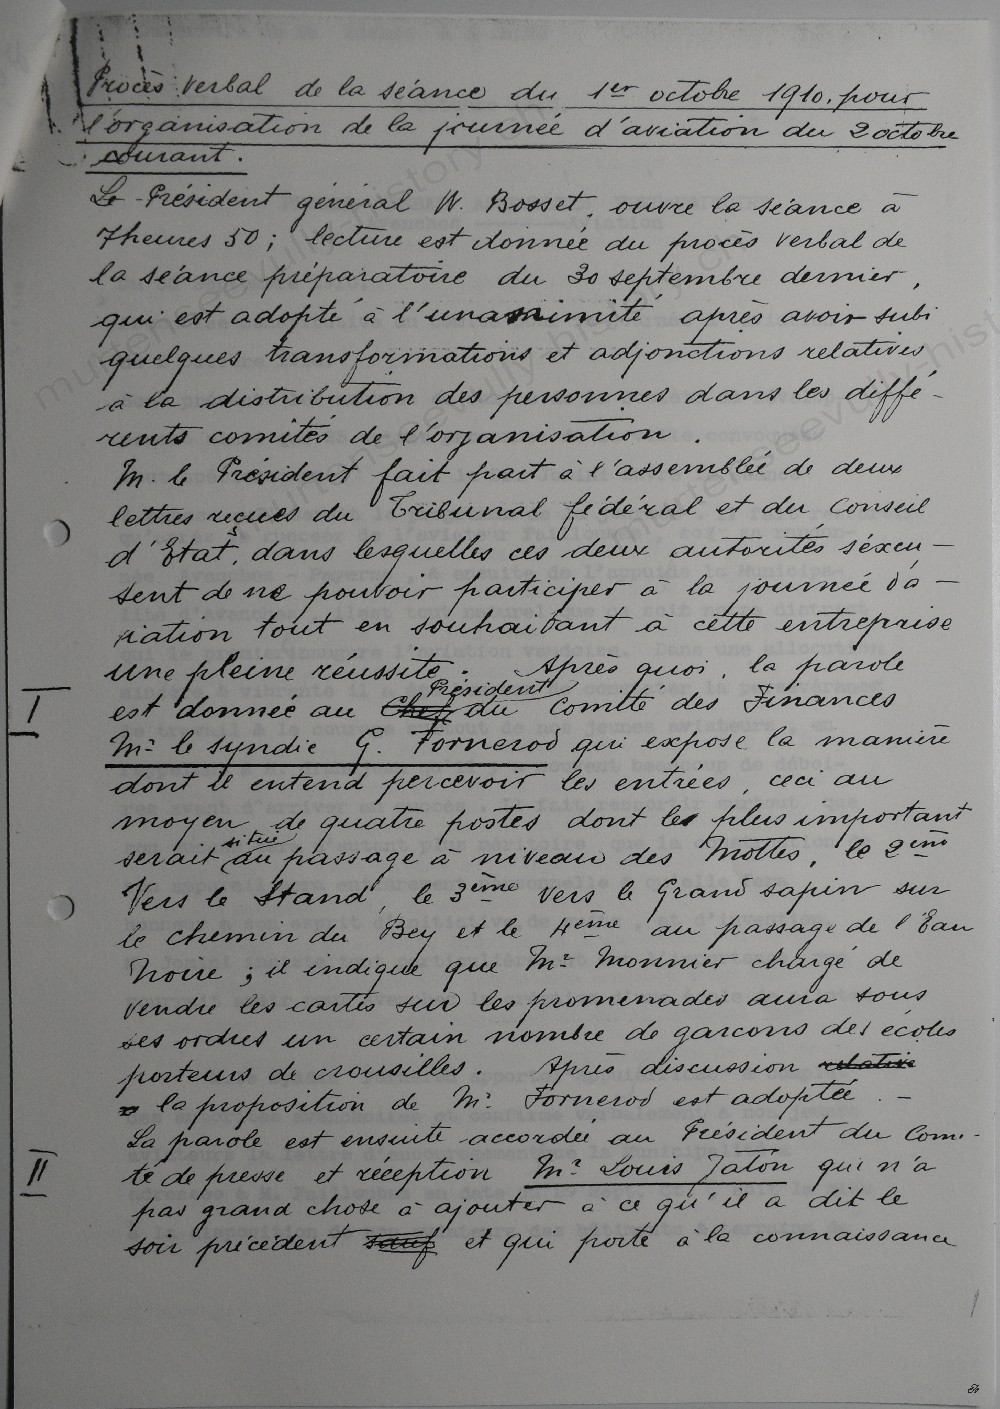 Procès verbal de la séance du 1er octobre 1910. pour
l'organisation de la journée d'aviation du 2 octobre
courant.
Le Président général W. Bosset, ouvre la séance à
7 heures 50; lecture est donnée du procès verbal de
la séance préparatoire du 30 septembre dernier,
qui est adopté à l'unanimité après avoir subi
quelques transformations et adjonctions relatives
à la distribution des personnes dans les diffé-
rents comités de l'organisation.
M. le Président fait part à l'assemblée de deux
lettres reçues du Tribunal fédéral et du Conseil
d'Etat, dans lesquelles ces deux autorités s'excu-
sent de ne pouvoir participer à la journée d'a-
viation tout en souhaitant à cette entreprise
une pleine réussite. Après quoi, la parole
Président
I est donnée au Chef du Comité des Finances
Mr le syndic G. Fornerod qui expose la manière
dont il entend percevoir les entrées, ceci au
moyen de quatre postes dont le plus important
situé
serait au passage à niveau des Mottes, le 2ème
Vers le Stand, le 3ème vers le Grand sapin sur
le chemin du Bey et le 4ème au passage de l'Eau
Noire; il indique que Mr Monnier chargé de
vendre les cartes sur les promenades aura sous
ses ordres un certain nombre de garçons des écoles
porteurs de crousilles. Après discussion relative
la proposition de Mr Fornerod est adoptée. -
La parole est ensuite accordée au Président du Comi-
II té de presse et réception Mr Louis Jaton qui n'a
pas grand chose à ajouter à ce qu'il a dit le
soir précédent sauf et qui porte à la connaissance